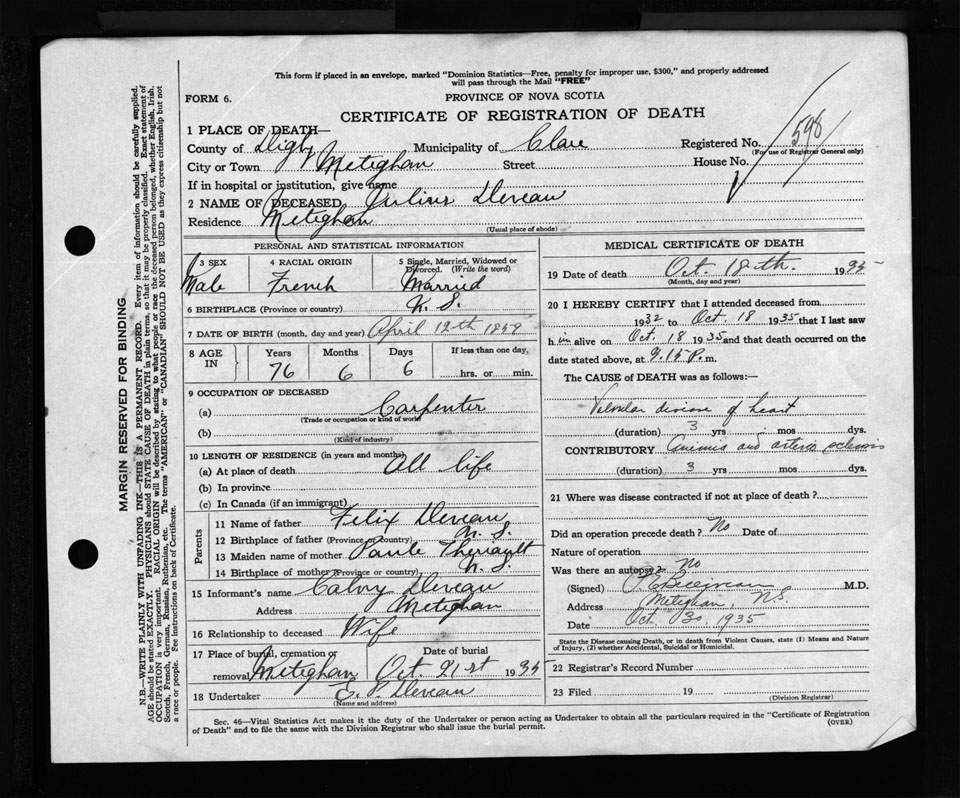 This form if placed in an envelope, marked "Dominion Statistics—Free, penalty for improper use, $300," and properly addressed
will pass through the Mail "FREE"
FORM 6.
PROVINCE OF NOVA SCOTIA
CERTIFICATE OF REGISTRATION OF DEATH
1 PLACE OF DEATH—
County of Digby Municipality of Clare Registered No. 598
(For use of Registrar General only)
City or Town Meteghan Street House No.
If in hospital or institution, give name
2 NAME OF DECEASED Julius Deveau
Residence Meteghan
(Usual place of abode)
PERSONAL AND STATISTICAL INFORMATION
3 SEX 4 RACIAL ORIGIN 5 Single, Married, Widowed or
Divorced. (Write the word)
Male French Married
6 BIRTHPLACE (Province or country) N. S.
7 DATE OF BIRTH (month, day and year) April 12th 1859
8 AGE IN Years Months Days If less than one day,
76 6 6 hrs. or min.
9 OCCUPATION OF DECEASED
(a) Carpenter
(Trade or occupation or kind of work)
(b)
(Kind of industry)
10 LENGTH OF RESIDENCE (in years and months)
(a) At place of death All life
(b) In province
(c) In Canada (if an immigrant)
Parents
11 Name of father Felix Deveau
12 Birthplace of father (Province or country) N. S.
13 Maiden name of mother Paule Theriault
14 Birthplace of mother (Province or country) N. S.
15 Informant's name Deveau
Address Meteghan
16 Relationship to deceased Wife
17 Place of burial, cremation or Date of burial
removal Meteghan Oct. 21st 1935
18 Undertaker E. P. Deveau
(Name and address)
MEDICAL CERTIFICATE OF DEATH
19 Date of death Oct. 18th. 1935
(Month, day and year)
20 I HEREBY CERTIFY that I attended deceased from
1932 to Oct. 18 1935 that I last saw
him alive on Oct. 18 1935 and that death occurred on the
date stated above, at 9.15 P. m.
The CAUSE of DEATH was as follows:—
Valvular disease of heart
(duration) 3 yrs mos dys.
CONTRIBUTORY and arterio sclerosis
(duration) 3 yrs. mos dys.
21 Where was disease contracted if not at place of death?
Did an operation precede death? No Date of
Nature of operation
Was there an autopsy? No
(Signed) M.D.
Address Meteghan, N.S.
Date Oct. 1935
State the Disease causing Death, or in death from Violent Causes, state (1) Means and Nature
of Injury, (2) whether Accidental, Suicidal or Homicidal.
22 Registrar's Record Number
23 Filed 19
(Division Registrar)
Sec. 46—Vital Statistics Act makes it the duty of the Undertaker or person acting as Undertaker to obtain all the particulars required in the "Certificate of Registration
of Death" and to file the same with the Division Registrar who shall issue the burial permit. (OVER)
MARGIN RESERVED FOR BINDING
N.B.—WRITE PLAINLY WITH UNFADING INK—THIS IS A PERMANENT RECORD. Every item of information should be carefully supplied.
AGE should be stated EXACTLY. PHYSICIANS should STATE CAUSE OF DEATH in plain terms, so that it may be properly classified. Exact statement of
OCCUPATION is very important. RACIAL ORIGIN will be described by stating to what people or race the deceased person belonged, whether English, Irish,
Scotch, French, German, Russian, Ruthenian, etc. The terms "AMERICAN" or "CANADIAN" SHOULD NOT BE USED as they express citizenship but not
a race or people. Fee instructions on back of Certificate.